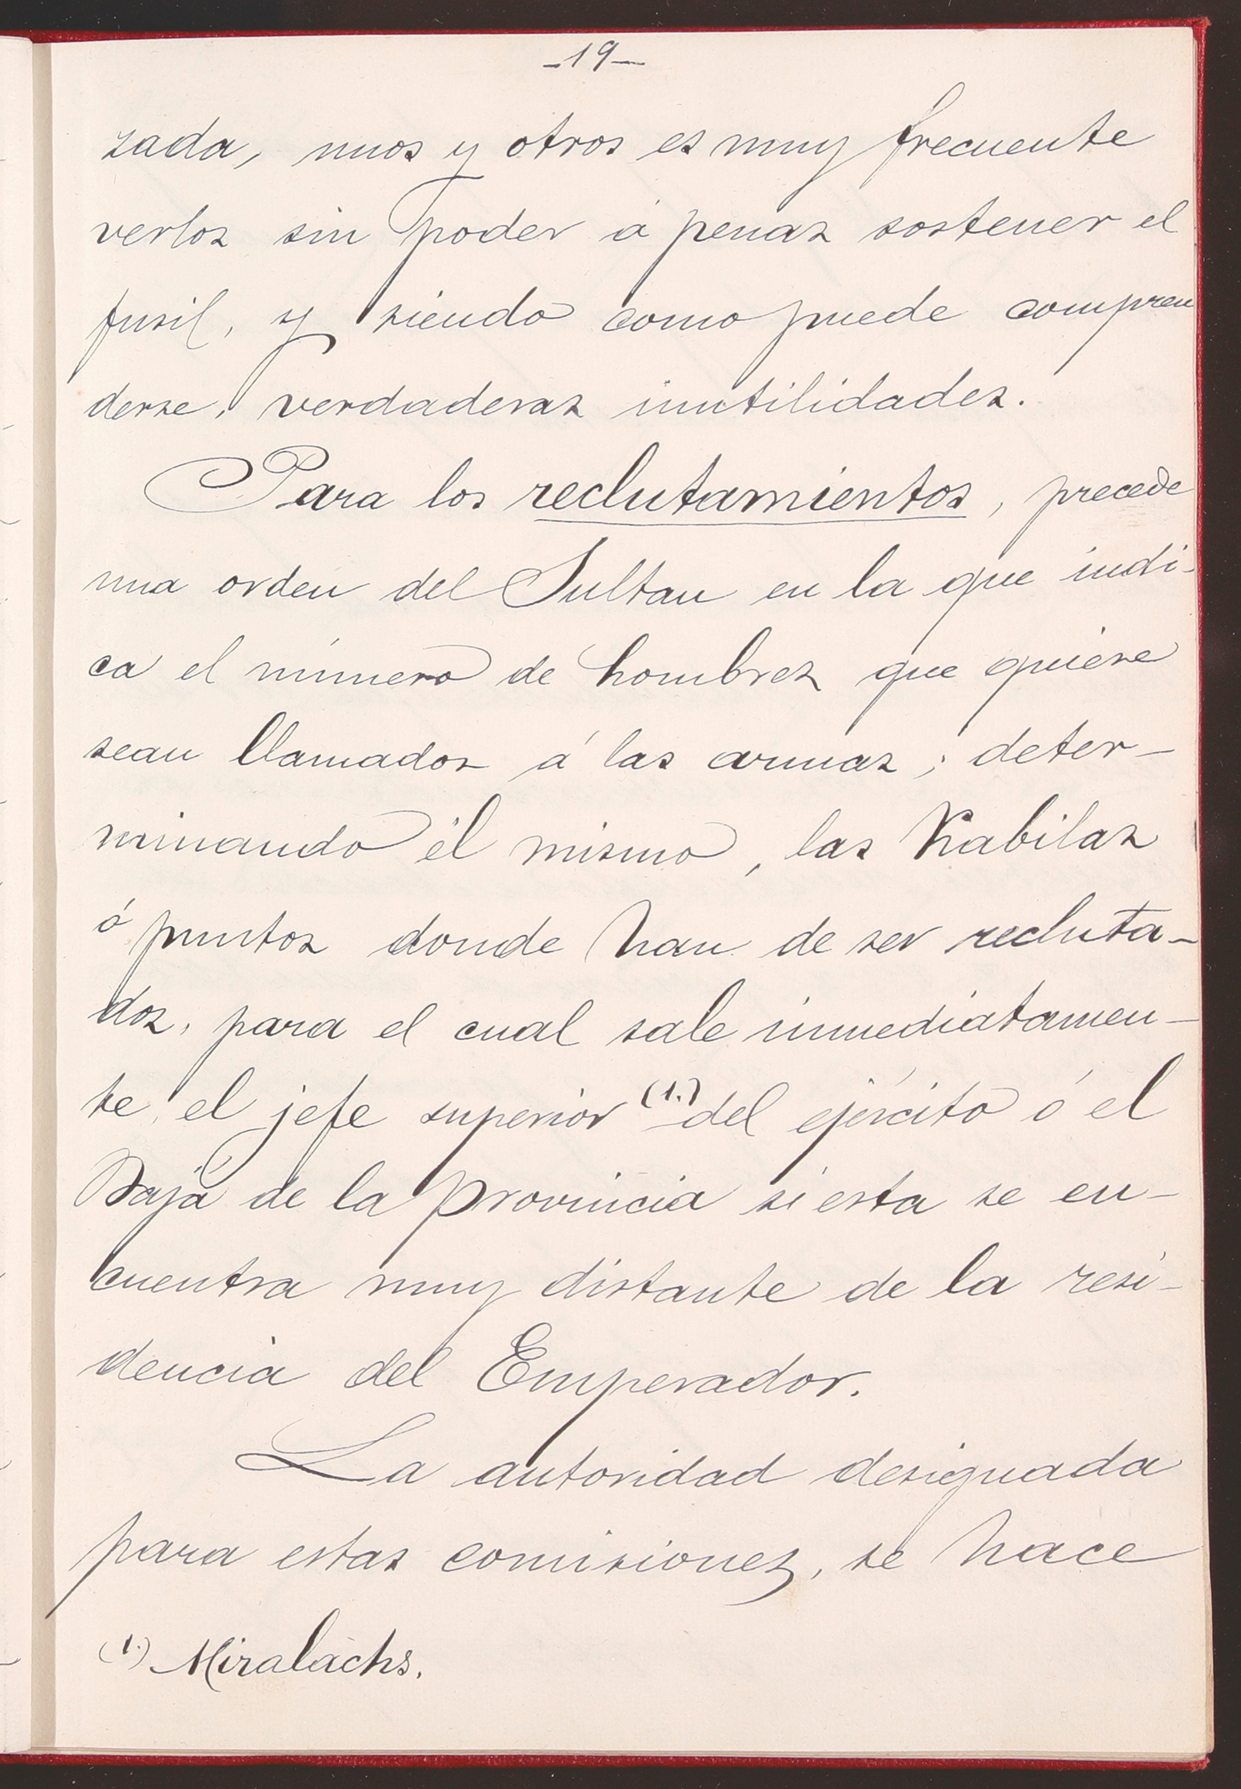 -19-
zada, unos y otros es muy frecuente
verlos sin poder á penas sostener el
fusil, y siendo como puede compren
derse, verdaderas inutilidades.
Para los reclutamientos, precede
una orden del Sultan en la que indi-
ca el número de hombres que quiere
sean llamados á las armas; deter-
minando él mismo, las Kabilas
ó puntos donde han de ser recluta-
dos, para el cual sale inmediatamen-
te el jefe superior (1.) del ejército ó el
Bajá de la provincia si esta se en-
cuentra muy distante de la resi-
dencia del Emperador.
La autoridad designada
para estas comisiones, se hace
(1.) Miralachs.